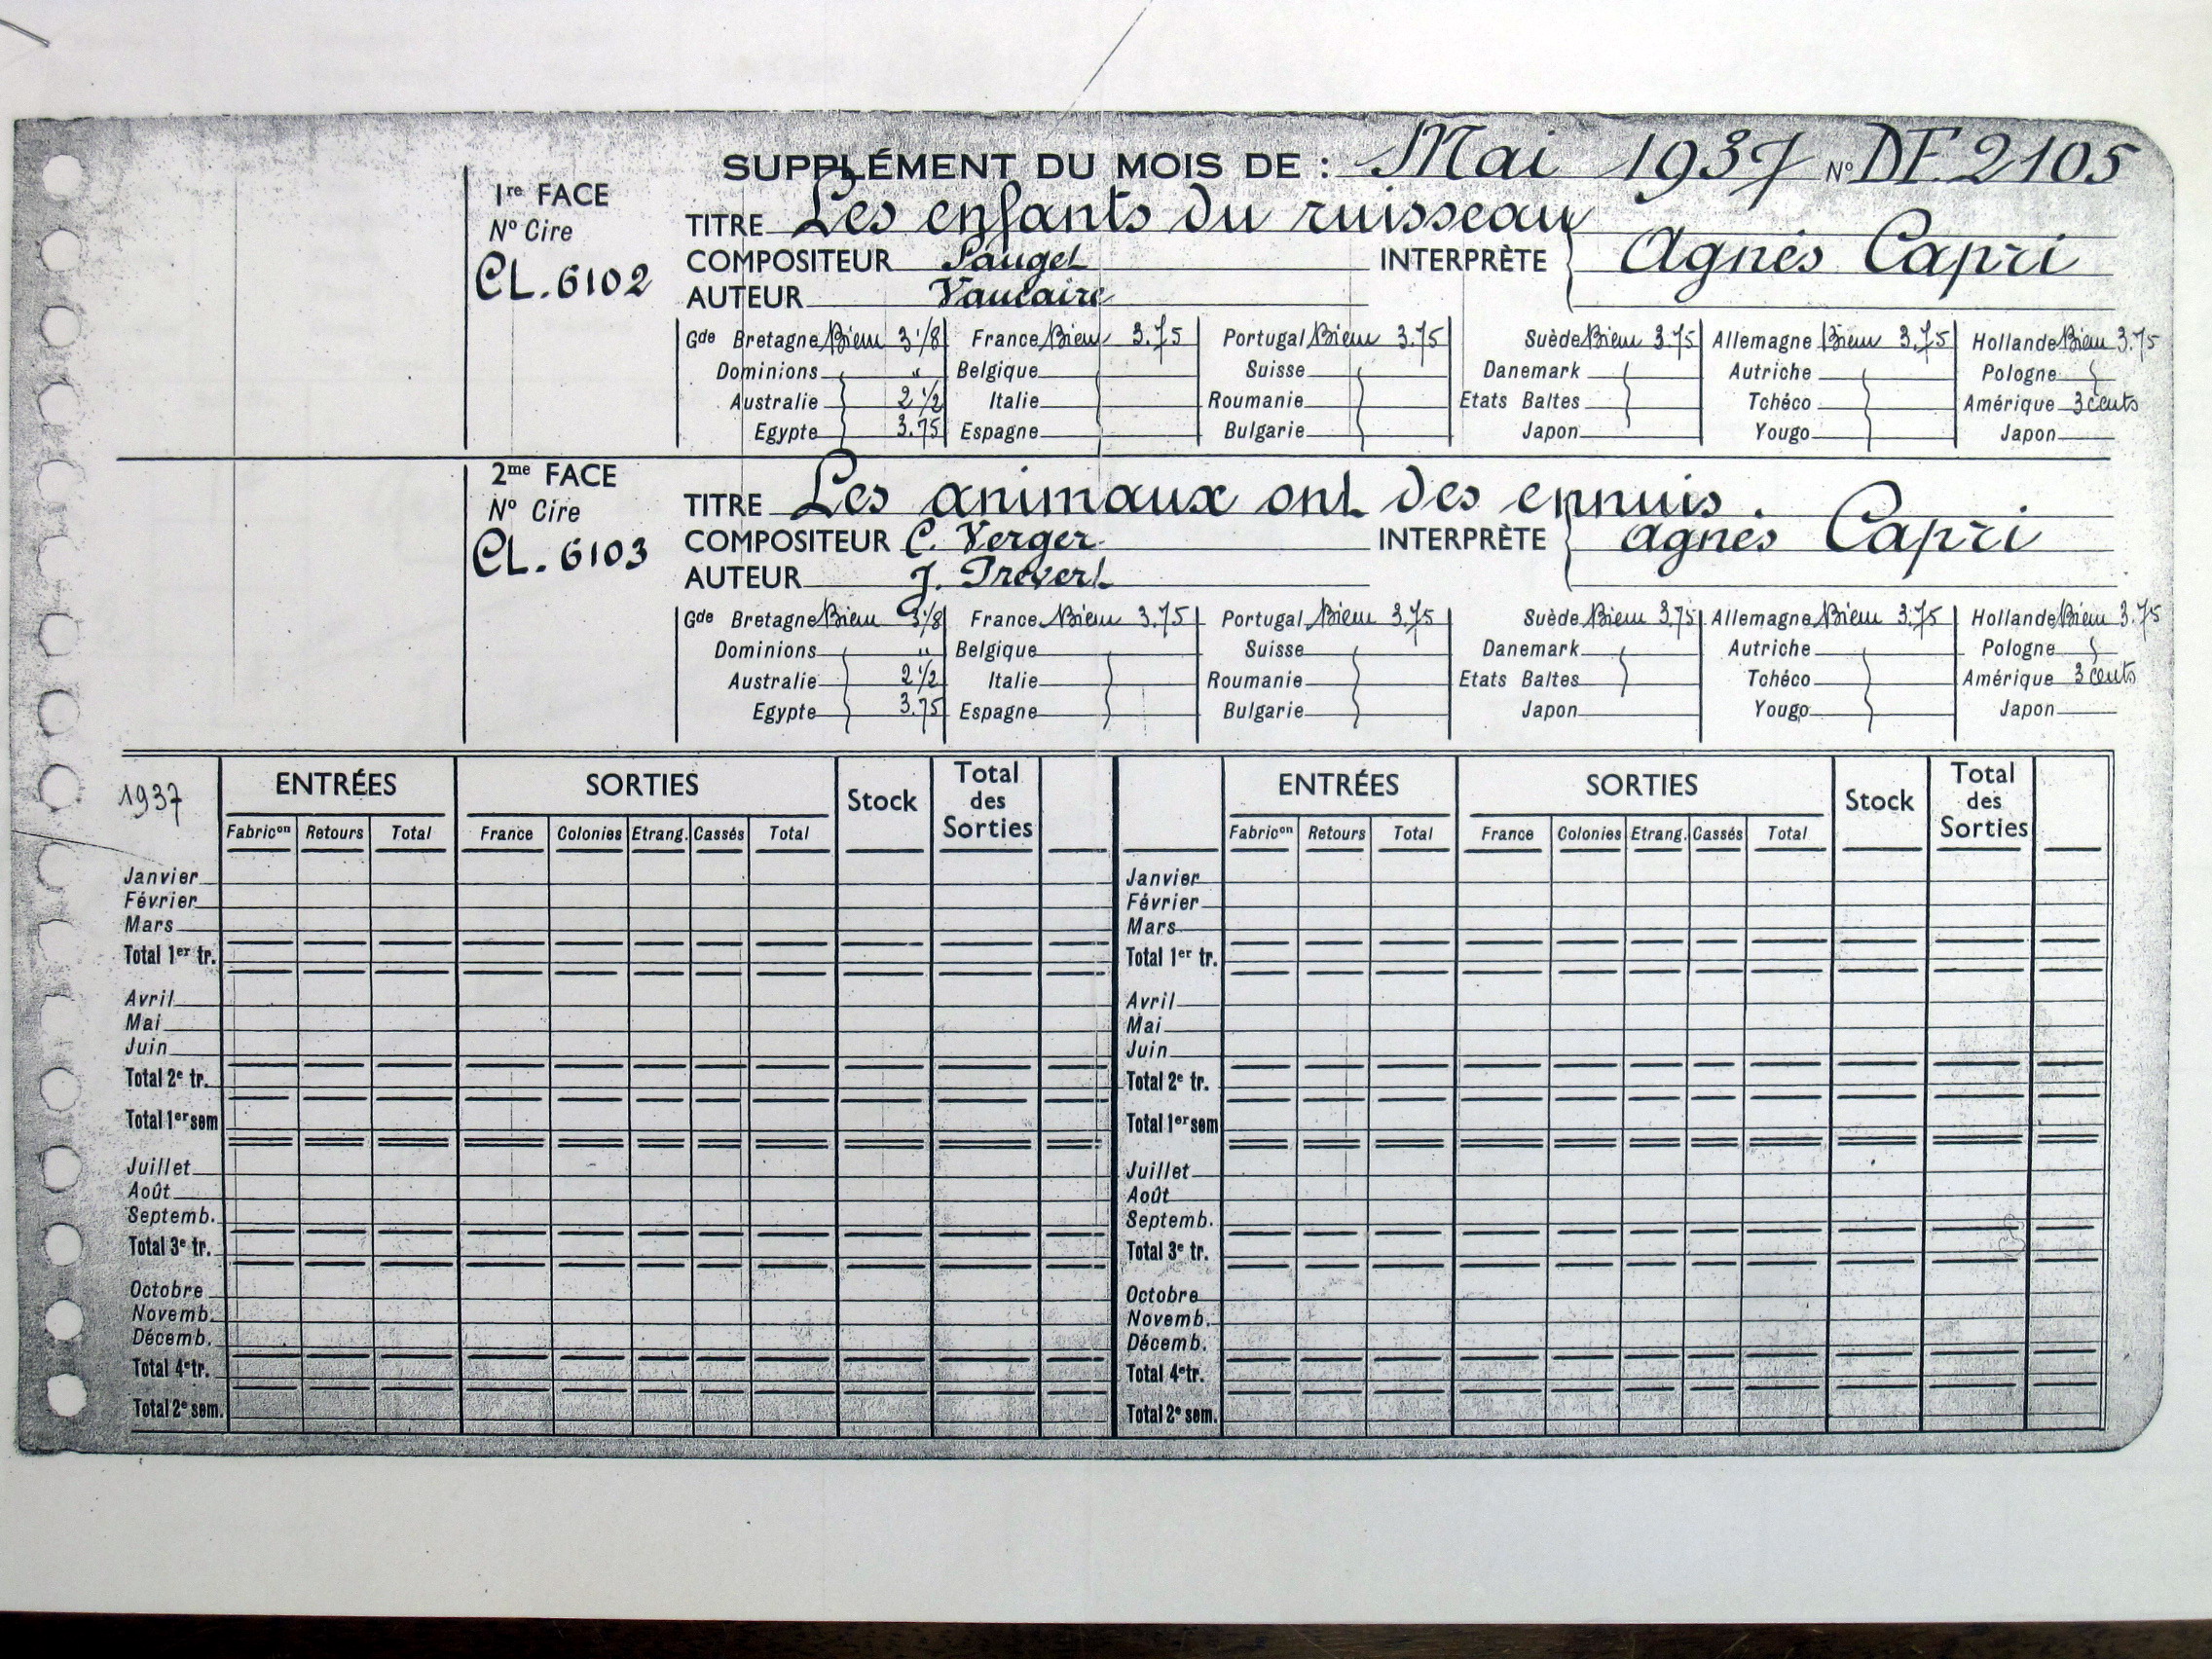 SUPPLÉMENT DU MOIS DE : Mai 1937 N° DF 2105
1re FACE
N° Cire
CL. 6102
TITRE Les enfants du ruisseau
COMPOSITEUR Sauget INTERPRÈTE Agnès Capri
AUTEUR Vaucaire
Gde Bretagne Biem 3 1/8 France Biem 3.75 Portugal Biem 3.75 Suède Biem 3.75 Allemagne Biem 3.75 Hollande Biem 3.75
Dominions " Belgique Suisse Danemark Autriche Pologne
Australie 2 1/2 Italie Roumanie Etats Baltes Tchéco Amérique 3 cents
Egypte 3.75 Espagne Bulgarie Japon Yougo Japon
2me FACE
N° Cire
CL. 6103
TITRE Les animaux ont des ennuis.
COMPOSITEUR C. Verger INTERPRÈTE Agnès Capri
AUTEUR J. Prévert
Gde Bretagne Biem 3 1/8 France Biem 3.75 Portugal Biem 3.75 Suède Biem 3.75 Allemagne Biem 3.75 Hollande Biem 3.75
Dominions " Belgique Suisse Danemark Autriche Pologne
Australie 2 1/2 Italie Roumanie Etats Baltes Tchéco Amérique 3 cents
Egypte 3.75 Espagne Bulgarie Japon Yougo Japon
1937 ENTRÉES SORTIES Stock Total des Sorties ENTRÉES SORTIES Stock Total des Sorties
Fabricon Retours Total France Colonies Etrang. Cassés Total Fabricon Retours Total France Colonies Etrang. Cassés Total
Janvier Janvier
Février Février
Mars Mars
Total 1er tr. Total 1er tr.
Avril Avril
Mai Mai
Juin Juin
Total 2e tr. Total 2e tr.
Total 1er sem Total 1er sem
Juillet Juillet
Août Août
Septemb. Septemb.
Total 3e tr. Total 3e tr.
Octobre Octobre
Novemb. Novemb.
Décemb. Décemb.
Total 4e tr. Total 4e tr.
Total 2e sem. Total 2e sem.